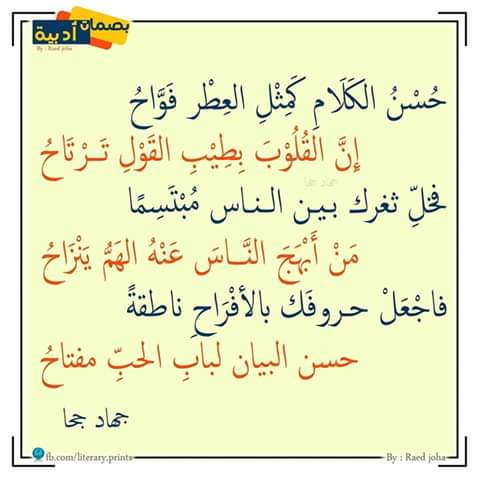 بصمات أدبية
By : Raed joha
حُسْنُ الكَلَامِ كَمِثْلِ العِطْر فَوَّاحُ
إِنَّ القُلُوْبَ بِطِيْبِ القَوْلِ تَـرْتَاحُ
جهاد جحا
فخلِّ ثغرك بـيـن الـنـاس مُبْتَسِمًا
مَنْ أَبْهَجَ النَّـاسَ عَنْهُ الهَمُّ يَنْزَاحُ
فاجْعَلْ حـروفَك بالأفْرَاحِ ناطقةً
حسن البيان لبابِ الحبِّ مفتاحُ
جهاد جحا
fb.com/literary.prints
By : Raed joha